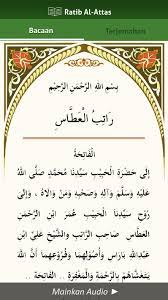 Ratib Al-Attas
Bacaan Terjemahan
بِسْمِ اللهِ الرَّحْمَنِ الرَّحِيْمِ
رَاتِبُ الْعَطَّاسِ
اَلْفَاتِحَةُ
إِلَى حَضْرَةِ الْحَبِيْبِ سَيِّدِنَا مُحَمَّدٍ صَلَّى اللهُ
عَلَيْهِ وَسَلَّمَ وَآلِهِ وَصَحْبِهِ وَمَنْ وَالَاهُ ، وَإِلَى
رُوْحِ سَيِّدِنَا الْحَبِيْبِ عُمَرَ بْنِ
الْعَطَّاسِ صَاحِبِ الرَّاتِبِ وَالشَّيْخِ عَلِيِّ بْنِ
عَبْدِاللهِ بَارَاسٍ وَأُصُوْلِهِمَا وَفُرُوْعِهِمَا أَنَّ اللهَ
يَتَغَشَّاهُمْ بِالرَّحْمَةِ وَالْمَغْفِرَةِ .. اَلْفَاتِحَةُ
Mainkan Audio